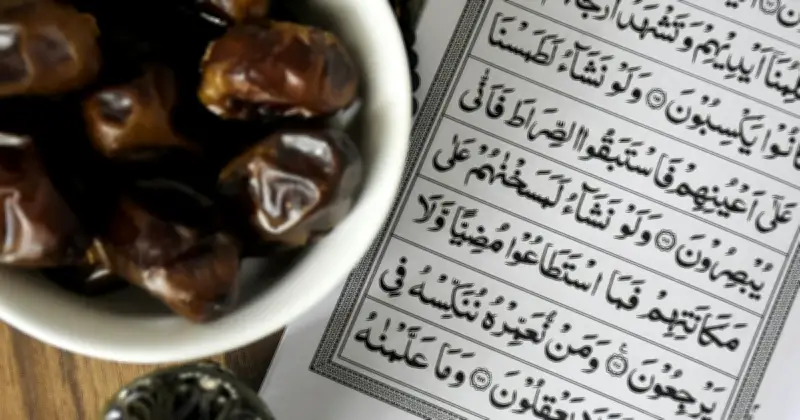 وَتُكَلِّمُنَاۤ اَيۡدِيۡهِمۡ وَتَشۡهَدُ اَرۡجُلُهُمۡ
كَانُوۡا يَكۡسِبُوۡنَ ۝ وَلَوۡ نَشَآءُ لَطَمَسۡنَا
عَلٰٓى اَعۡيُنِهِمۡ فَاسۡتَبَقُوا الصِّرَاطَ فَاَنّٰى
يُبۡصِرُوۡنَ ۝ وَلَوۡ نَشَآءُ لَمَسَخۡنٰهُمۡ عَلٰى
مَكَانَتِهِمۡ فَمَا اسۡتَطَاعُوۡا مُضِيًّا وَّلَا
يَرۡجِعُوۡنَ ۝ وَمَنۡ نُّعَمِّرۡهُ نُنَكِّسۡهُ فِى
يَعۡقِلُوۡنَ ۝ وَمَا عَلَّمۡنٰهُ